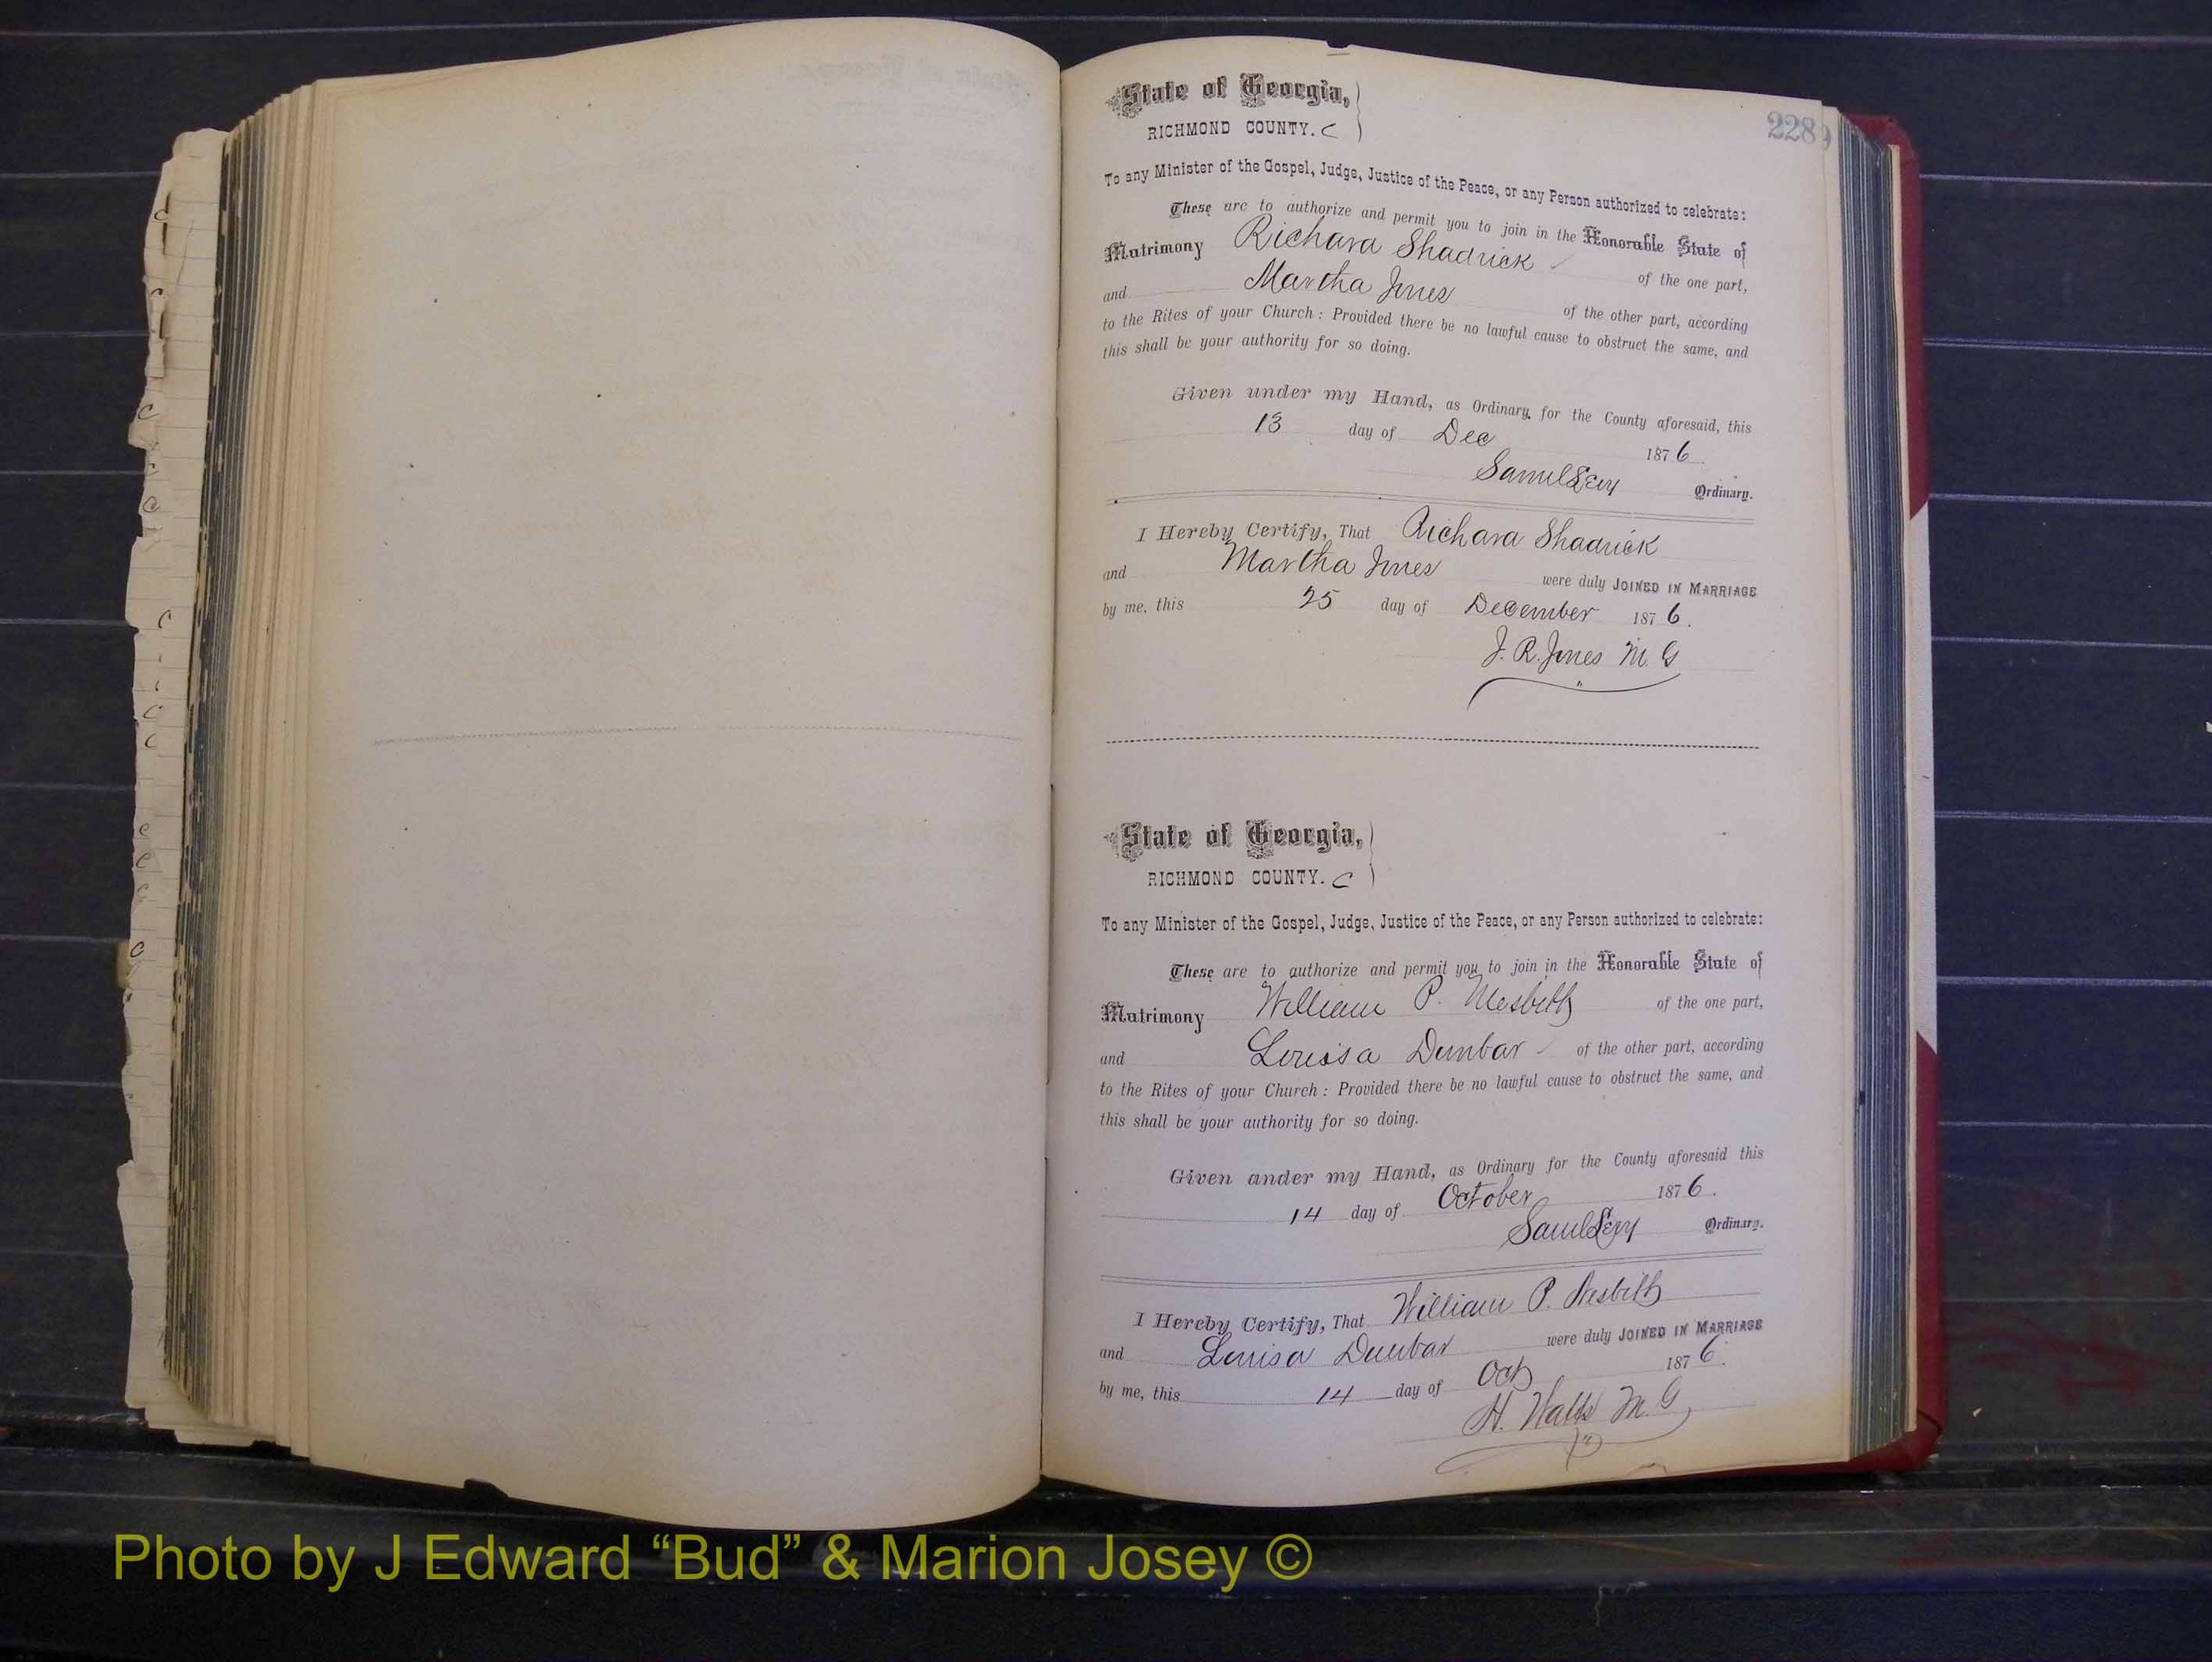 228
State of Georgia,
RICHMOND COUNTY. C
To any Minister of the Gospel, Judge, Justice of the Peace, or any Person authorized to celebrate:
These are to authorize and permit you to join in the Honorable State of
Matrimony Richard Shadrick of the one part,
and Martha Jones of the other part, according
to the Rites of your Church: Provided there be no lawful cause to obstruct the same, and
this shall be your authority for so doing.
Given under my Hand, as Ordinary, for the County aforesaid, this
13 day of Dec 1876.
Samul Levy Ordinary.
I Hereby Certify, That Richard Shadrick
and Martha Jones were duly JOINED IN MARRIAGE
by me, this 25 day of December 1876.
J. R. Jones M. G
State of Georgia,
RICHMOND COUNTY. C
To any Minister of the Gospel, Judge, Justice of the Peace, or any Person authorized to celebrate:
These are to authorize and permit you to join in the Honorable State of
Matrimony William P. Nesbitt of the one part,
and Louisa Dunbar of the other part, according
to the Rites of your Church: Provided there be no lawful cause to obstruct the same, and
this shall be your authority for so doing.
Given ander my Hand, as Ordinary for the County aforesaid this
14 day of October 1876.
Saml Levy Ordinary.
I Hereby Certify, That William P. Nesbitt
and Louisa Dunbar were duly JOINED IN MARRIAGE
by me, this 14 day of Oct 1876.
H. Watts M. G
Photo by J Edward “Bud” & Marion Josey ©